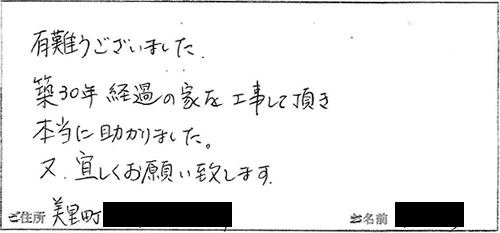 有難うございました.
築30年経過の家を工事して頂き
本当に助かりました。
又、宜しくお願い致します.
ご住所 美里町
ご名前